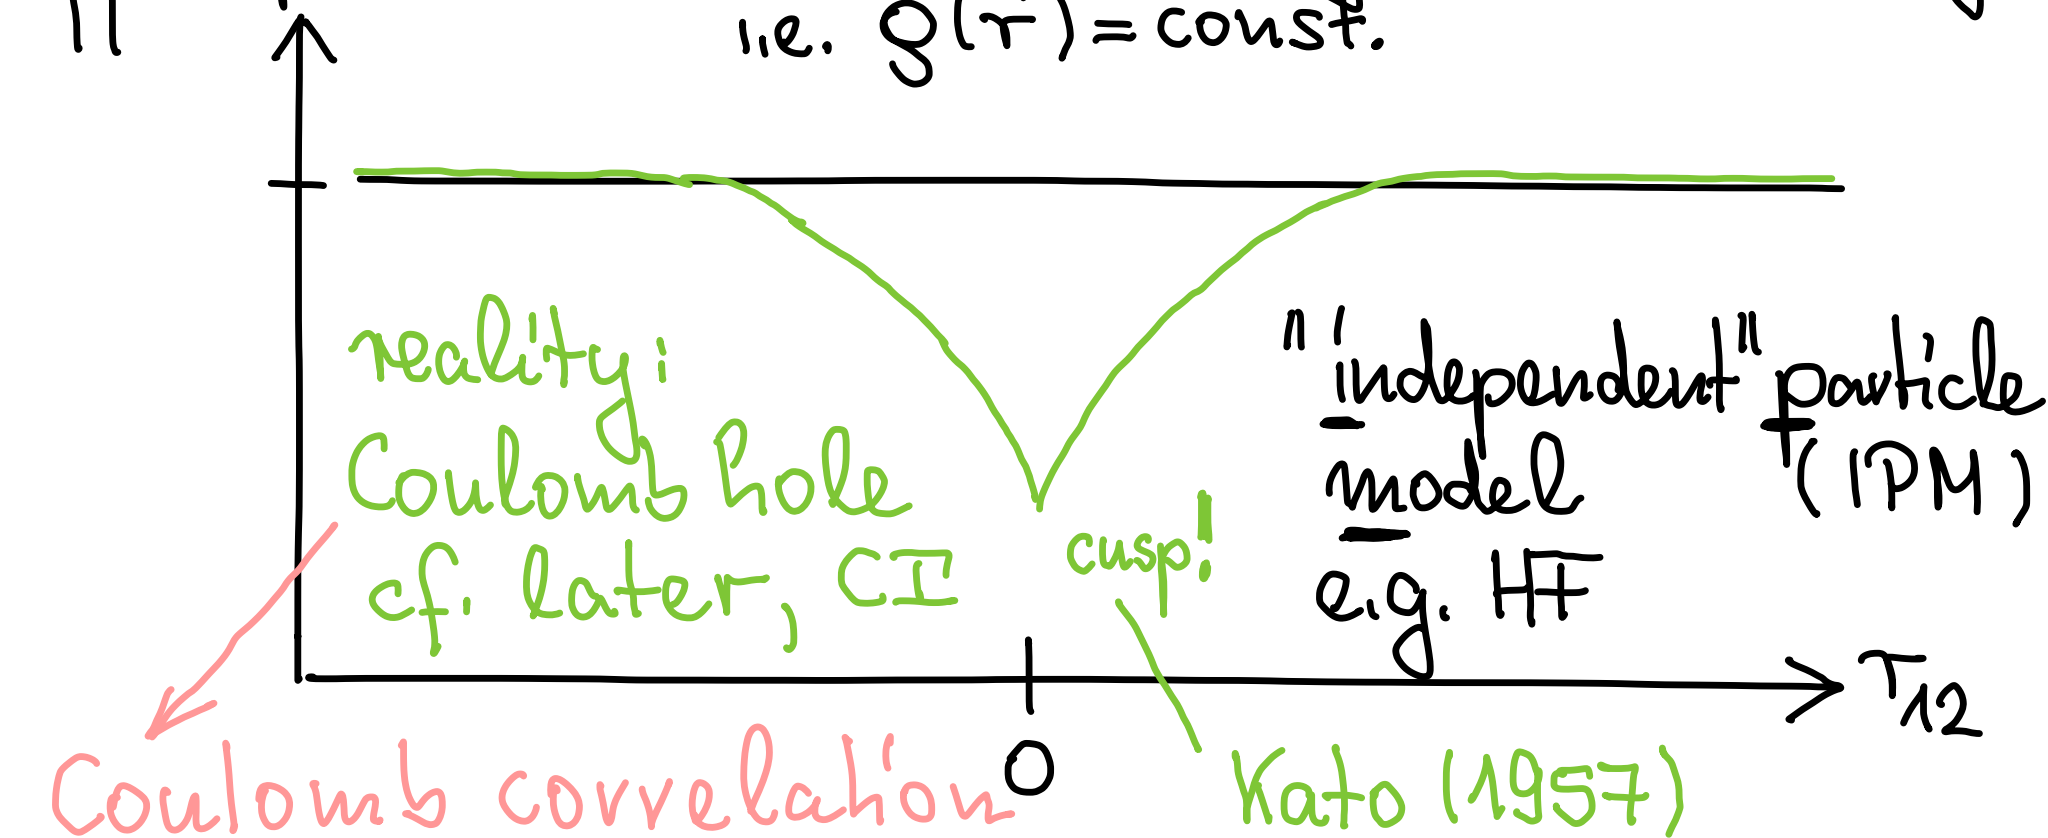 i.e. ρ(r) = const.
reality:
Coulomb hole
cf. later, CI
cusp!
"independent" particle
model (IPM)
e.g. HF
r12
0
Coulomb correlation
Kato (1957)